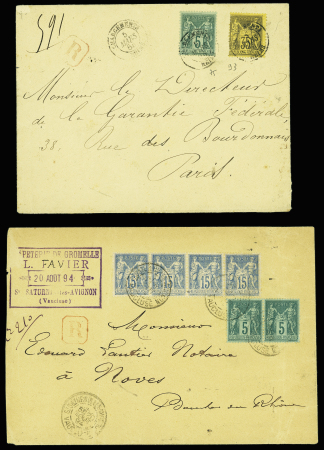 591
R
5
35
75
93
Monsieur le Directeur
de la Garantie Fédérale,
38, Rue des Bourdonnais
Paris.
PETERIE DE GROMELLE
L. FAVIER
20 AOUT 94
St SATURNIN-les-AVIGNON
(Vaucluse)
15 15 15 15
5 5
R
Monsieur
Edouard Lautier Notaire
à Noves
Bouches du Rhône